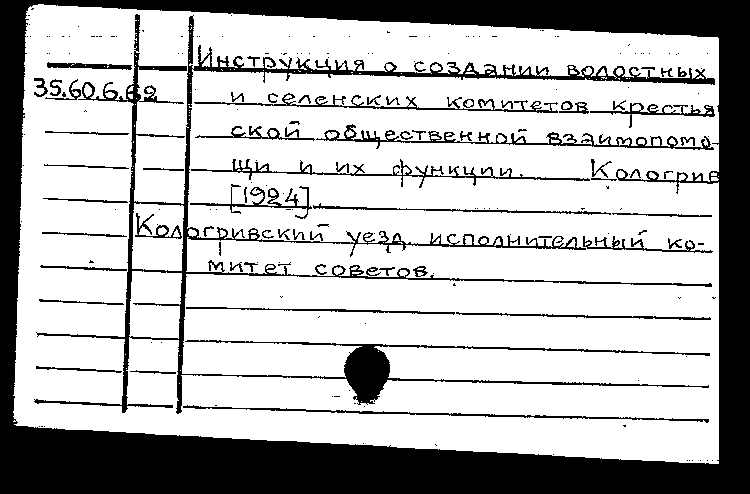 Инструкция о создании волостных
35.60.6.62 и селенских комитетов крестья
ской общественной взаимопомо-
щи и их функции. Кологрив
[1924].
Кологривский уезд. исполнительный ко-
митет советов.